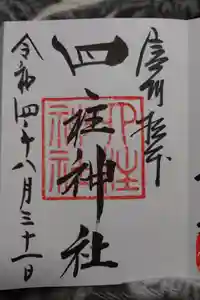 信州松本
四柱神社
四柱神社
令和四年八月三十一日